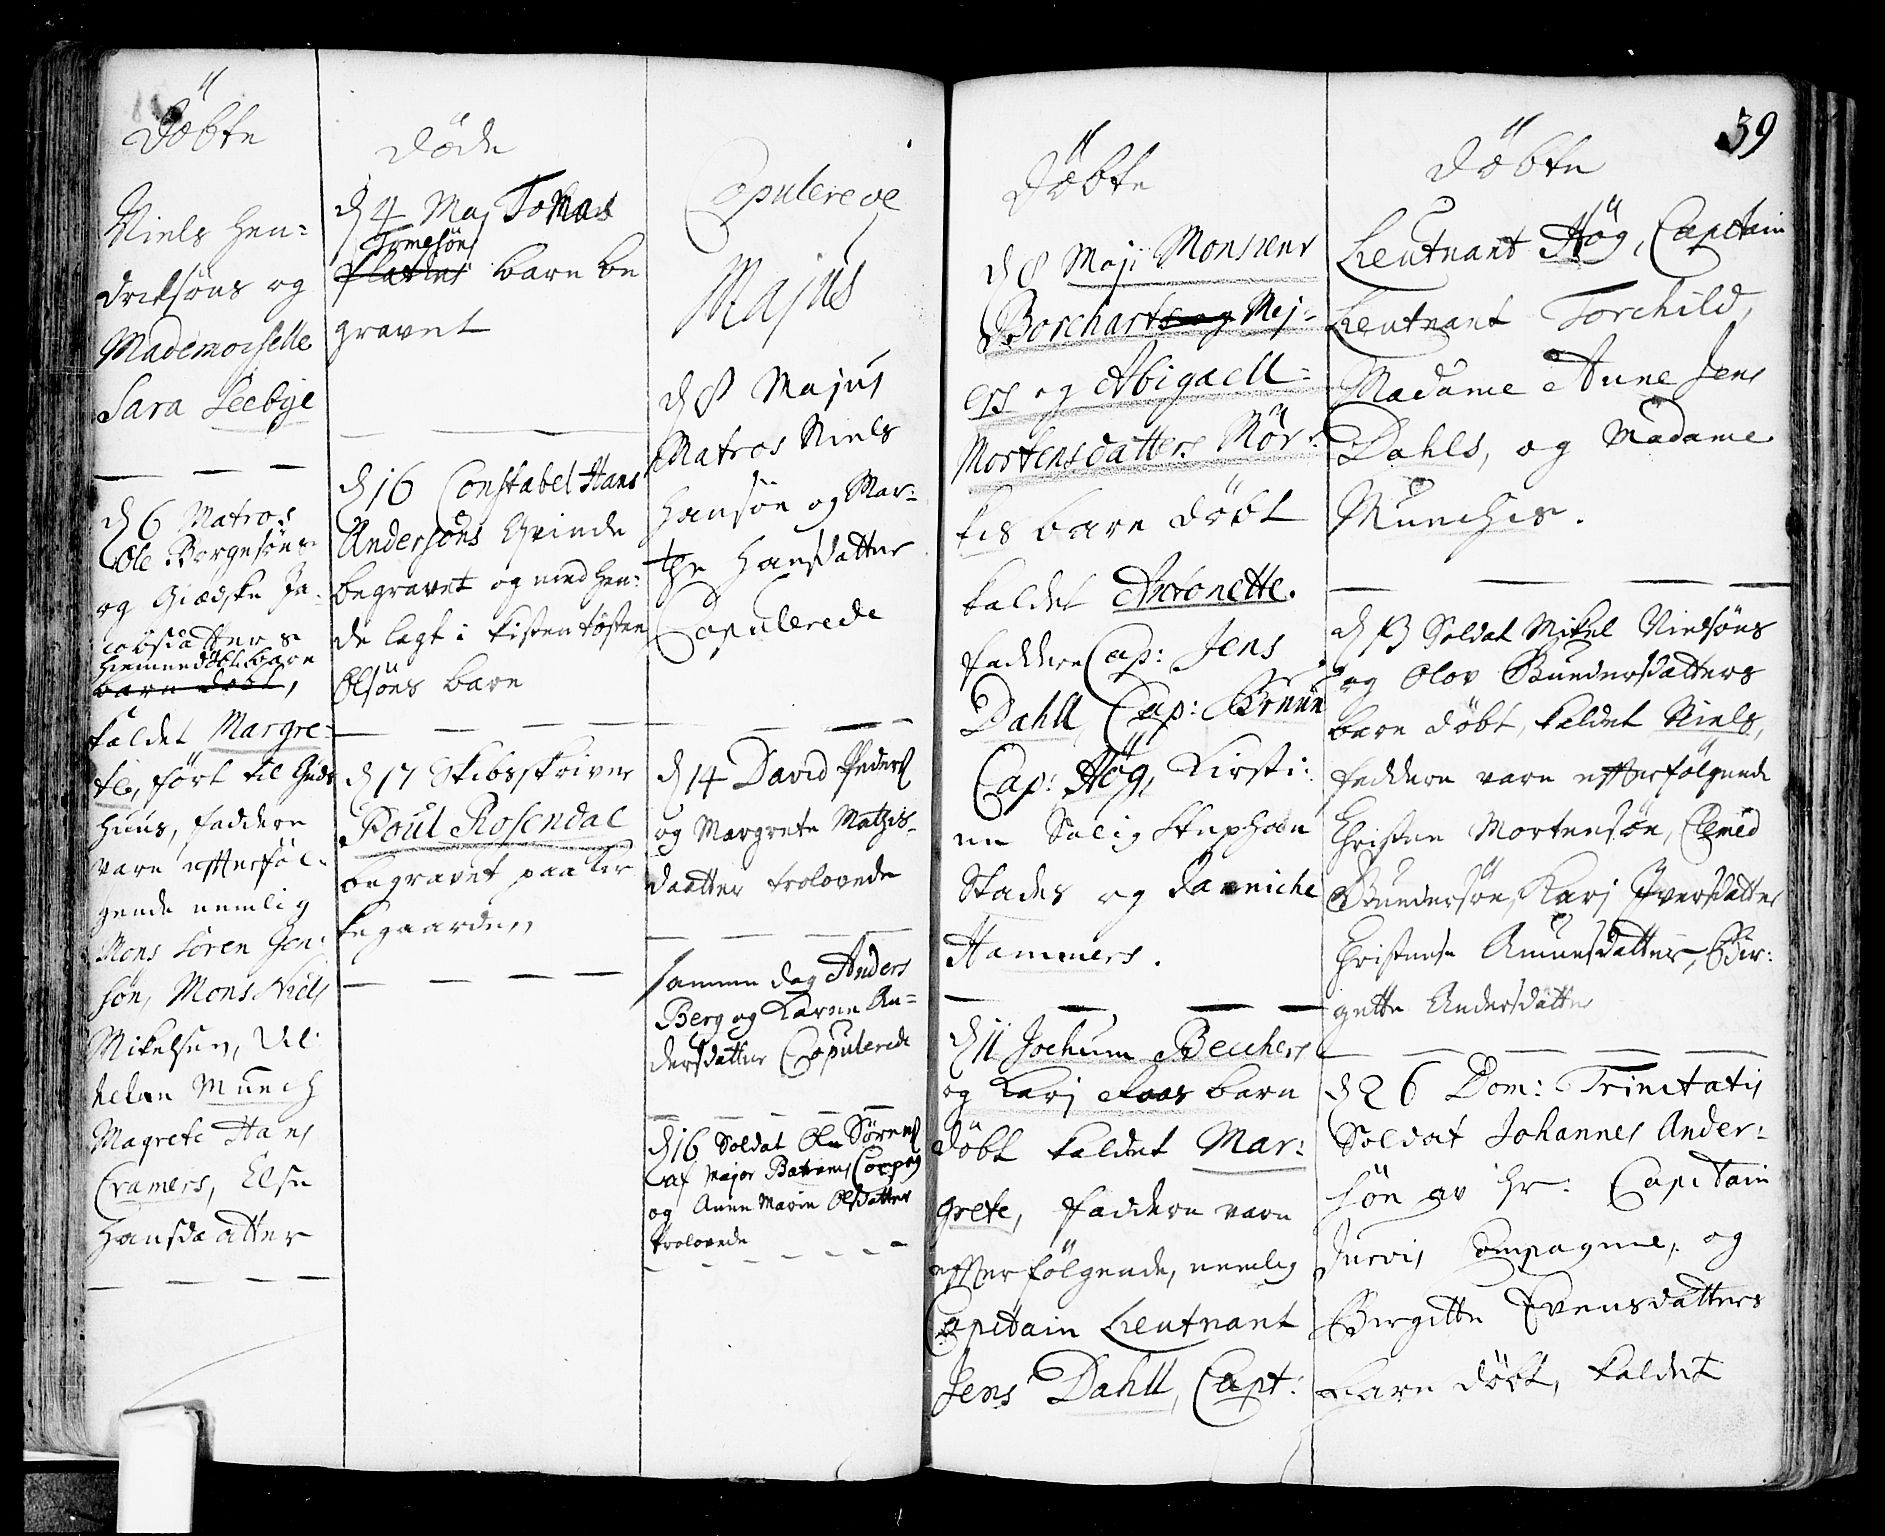 Döbte
Niels Hen=
drichsöns og
Mademoiselle
Sara Seebye
d 6 Matros
Ole Borgesöns
og Giædske Ja-
cobsdatters
hiemmedöbt barn
barn döbt,
kaldet Margre-
te, fört til Guds
Huus, faddere
vare effterföl-
gende nemlig
Mons Sören Jen-
sön, Mons Niels
Mikelsen, Vil-
helm Munch
Magrete Hans
Cramers, Else
Hansdaatter
Döde
d 4 Maj Tomas
Tomesön
barn be
gravet
d 16 Constabel Hans
Andersöns Qvinde
begravet og med hen-
de lagt i kisten Tosten
Olsöns barn
d 17 Skibsskriver
Poul Rosendal
begravet paa Kir
kegaarden
Copulerede
Majus
d 8 Majus
Matros Niels
Hansön og Mar-
the Hansdatter
Copulerede
d 14 David Peders
og Margrete Mathis-
daatter trolovede
samme dag Anders
Berg og Karen An-
dersdatter Copulerede
d 16 Soldat Ole Sörens
af Major Comp og
og Anne Marie Olsdatter
trolovede
Döbte
d 8 Maji Monsieur
Borchart og Mej-
ers og Abigaell
Mortensdatters Mör-
kis barn döbt
kaldet Antonette.
faddere Cap: Jens
Dahll, Cap: Bruun
Cap: Hög, Kirsti-
ne Salig Stephan
Stades og Danniche
Hammers.
d 11 Jochum Beuchers
og Karj Roas barn
döbt kaldet Mar-
grete, faddere vare
effterfölgende, nemlig
Capitain Lieutnant
Jens Dahll, Capt:
39
Döbte
Lieutnant Hög, Capitain
Lieutnant Torchild,
Madame Anne Jens
Dahls, og Madame
Munchis.
d 13 Soldat Mikel Nielsöns
og Olov Gundersdatters
barn döbt, kaldet Niels,
faddere vare effterfölgende
Christen Mortensön, Elemed
Gundersön, Karj Iversdatter
Christense Amunsdatter, Bir-
gette Andersdatter
d 26 Dom: Trinitatis
Soldat Johannes Ander-
sön av Hr: Capitain
Jurvis Compagnie, og
Birgitte Evensdatters
barn döbt, kaldet